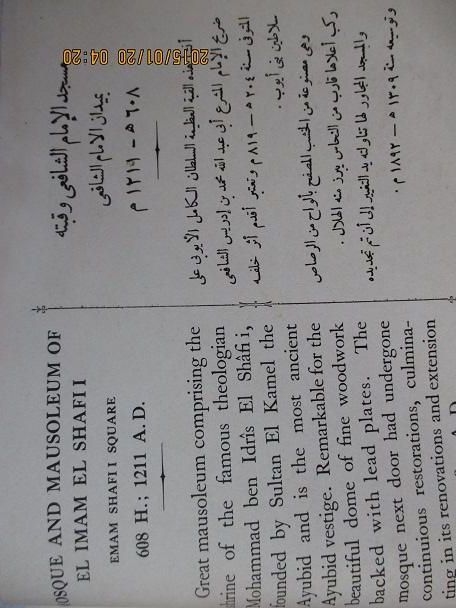 OSQUE AND MAUSOLEUM OF
EL IMAM EL SHAFII
EMAM SHAFII SQUARE
608 H.; 1211 A.D.
Great mausoleum comprising the
hrine of the famous theologian
Mohammad ben Idris El Shâfi i,
ounded by Sultan El Kamel the
Ayubid and is the most ancient
Ayubid vestige. Remarkable for the
beautiful dome of fine woodwork
backed with lead plates. The
mosque next door had undergone
continuious restorations, culmina-
ting in its renovations and extension
A. D.
مسجد الإمام الشافعى وقبته
بميدان الإمام الشافعى
٦٠٨ هـ — ١٢١١ م
أنشأ هذه القبة العظيمة السلطان الكامل الأيوبى على
ضريح الإمام الشرع أبى عبد الله محمد بن إدريس الشافعى
المتوفى سنة ٢٠٤ هـ — ٨١٩ م وتعتبر أقدم أثر خلفه
سلاطين بنى أيوب .
وهى مصنوعة من الخشب المصفح بألواح من الرصاص
ركب أعلاها قارب من النحاس يبرز منه الهلال .
والمسجد المجاور لها تناولته يد التغيير إلى أن تم تجديده
وتوسيعه سنة ١٣٠٩ هـ — ١٨٩٢ م .
2015/01/20 04:20